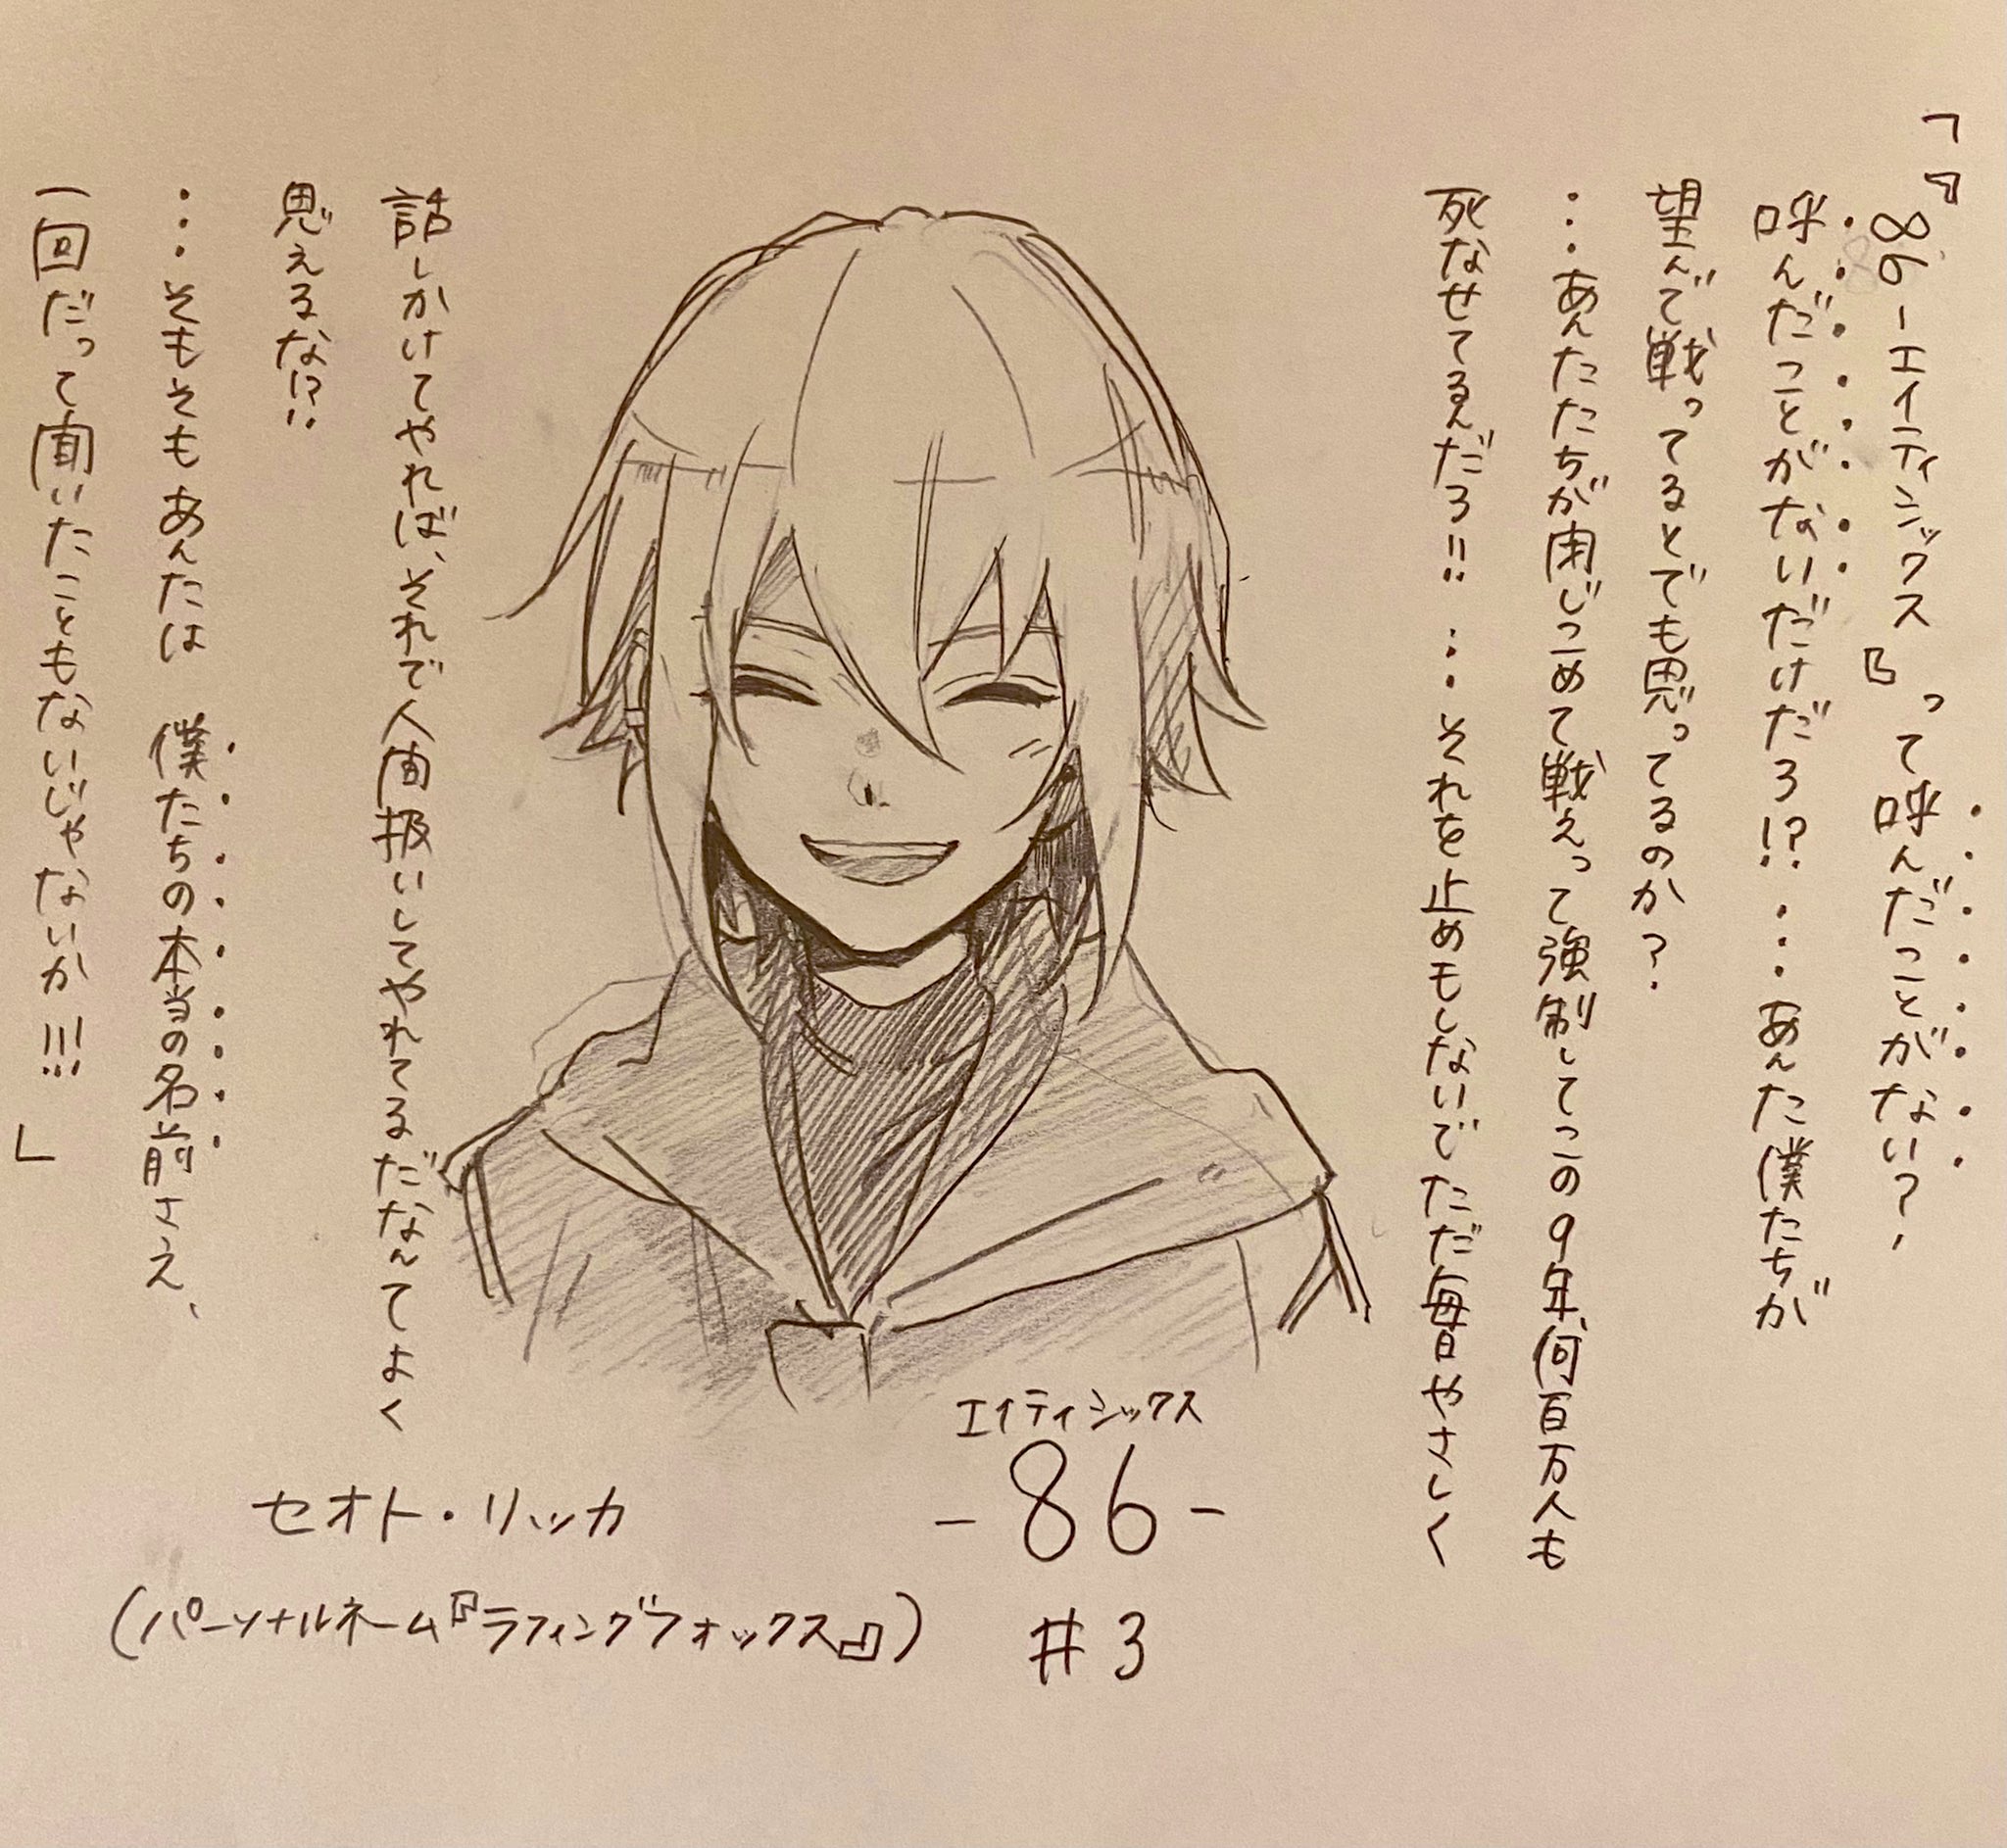 「『86ーエイティシックス』って呼んだことがない?!
呼んだことがないだけだろ!?…あんた僕たちが
望んで戦ってるとでも思ってるのか?.
…あんたたちが閉じこめて戦えって強制してこの9年、何百万人も
死なせてるんだろ!!…それを止めもしないでただ毎日やさしく
話しかけてやれば、それで人間扱いしてやれてるだなんてよく
思えるな!?!
…そもそもあんたは 僕たちの本当の名前さえ、
一回だって聞いたこともないじゃないか!!!」
エイティシックス
-86-
#3
セオト・リッカ
(パーソナルネーム『ラフィングフォックス』)